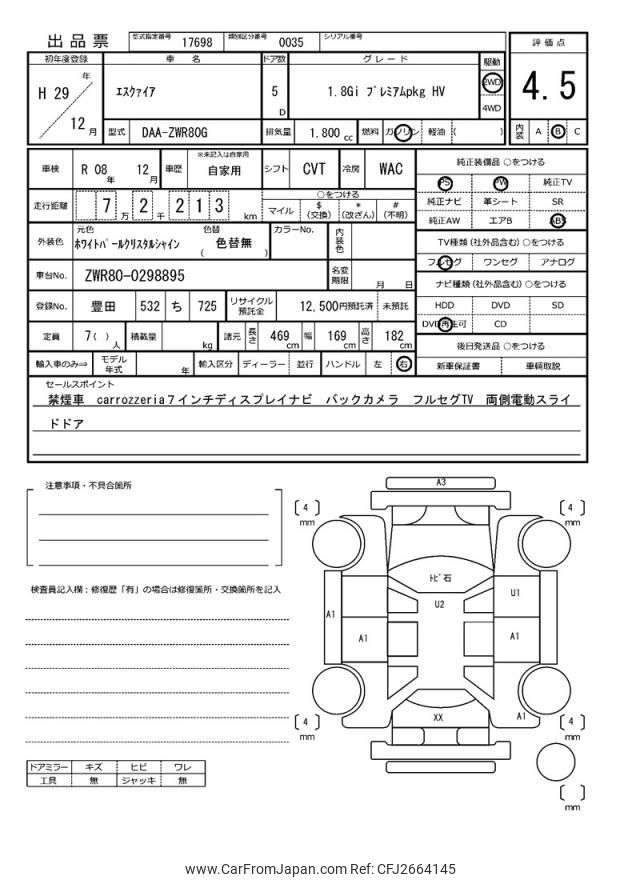 出品票 型式指定番号 17698 類別区分番号 0035 シリアル番号
評価点
初年度登録 車名 ドア数 グレード 駆動
H 29 年 12 月 エスクァイア 5 D 1.8Gi プレミアムpkg HV 2WD 4WD
4.5
型式 DAA-ZWR80G 排気量 1,800 cc 燃料 ガソリン 軽油 ( ) 内装 A B C
車検 R 08 年 12 月 車歴 ※未記入は自家用 自家用 シフト CVT 冷房 WAC
純正装備品 ○をつける
PS PW 純正TV
走行距離 7 万 2 千 2 1 3 km ○をつける
マイル $ (交換) * (改ざん) # (不明)
純正ナビ 革シート SR
純正AW エアB ABS
外装色 元色 ホワイトパールクリスタルシャイン 色替 ( 色替無 ) カラーNo. 内装色
TV種類 (社外品含む) ○をつける
フルセグ ワンセグ アナログ
車台No. ZWR80-0298895 名変期限 月 日
ナビ種類 (社外品含む) ○をつける
登録No. 豊田 532 ち 725 リサイクル預託金 12,500円預託済 未預託
HDD DVD SD
DVD再生可 CD
定員 7 ( ) 人 積載量 kg 諸元 長さ 469 cm 幅 169 cm 高さ 182 cm
後日発送品 ○をつける
輸入車のみ⇒ モデル年式 年 輸入区分 ディーラー 並行 ハンドル 左 右
新車保証書 車輌取説
セールスポイント
禁煙車 carrozzeria7インチディスプレイナビ バックカメラ フルセグTV 両側電動スライ
ドドア
注意事項・不具合箇所
検査員記入欄:修復歴「有」の場合は修復箇所・交換箇所を記入
ドアミラー キズ ヒビ ワレ
工具 無 ジャッキ 無
A3
[ 4 ] mm [ 4 ] mm
トビ石
U2
U1
A1
A1 A1
XX A1
[ 4 ] mm [ 4 ] mm
[ ] mm
www.CarFromJapan.com Ref: CFJ2664145